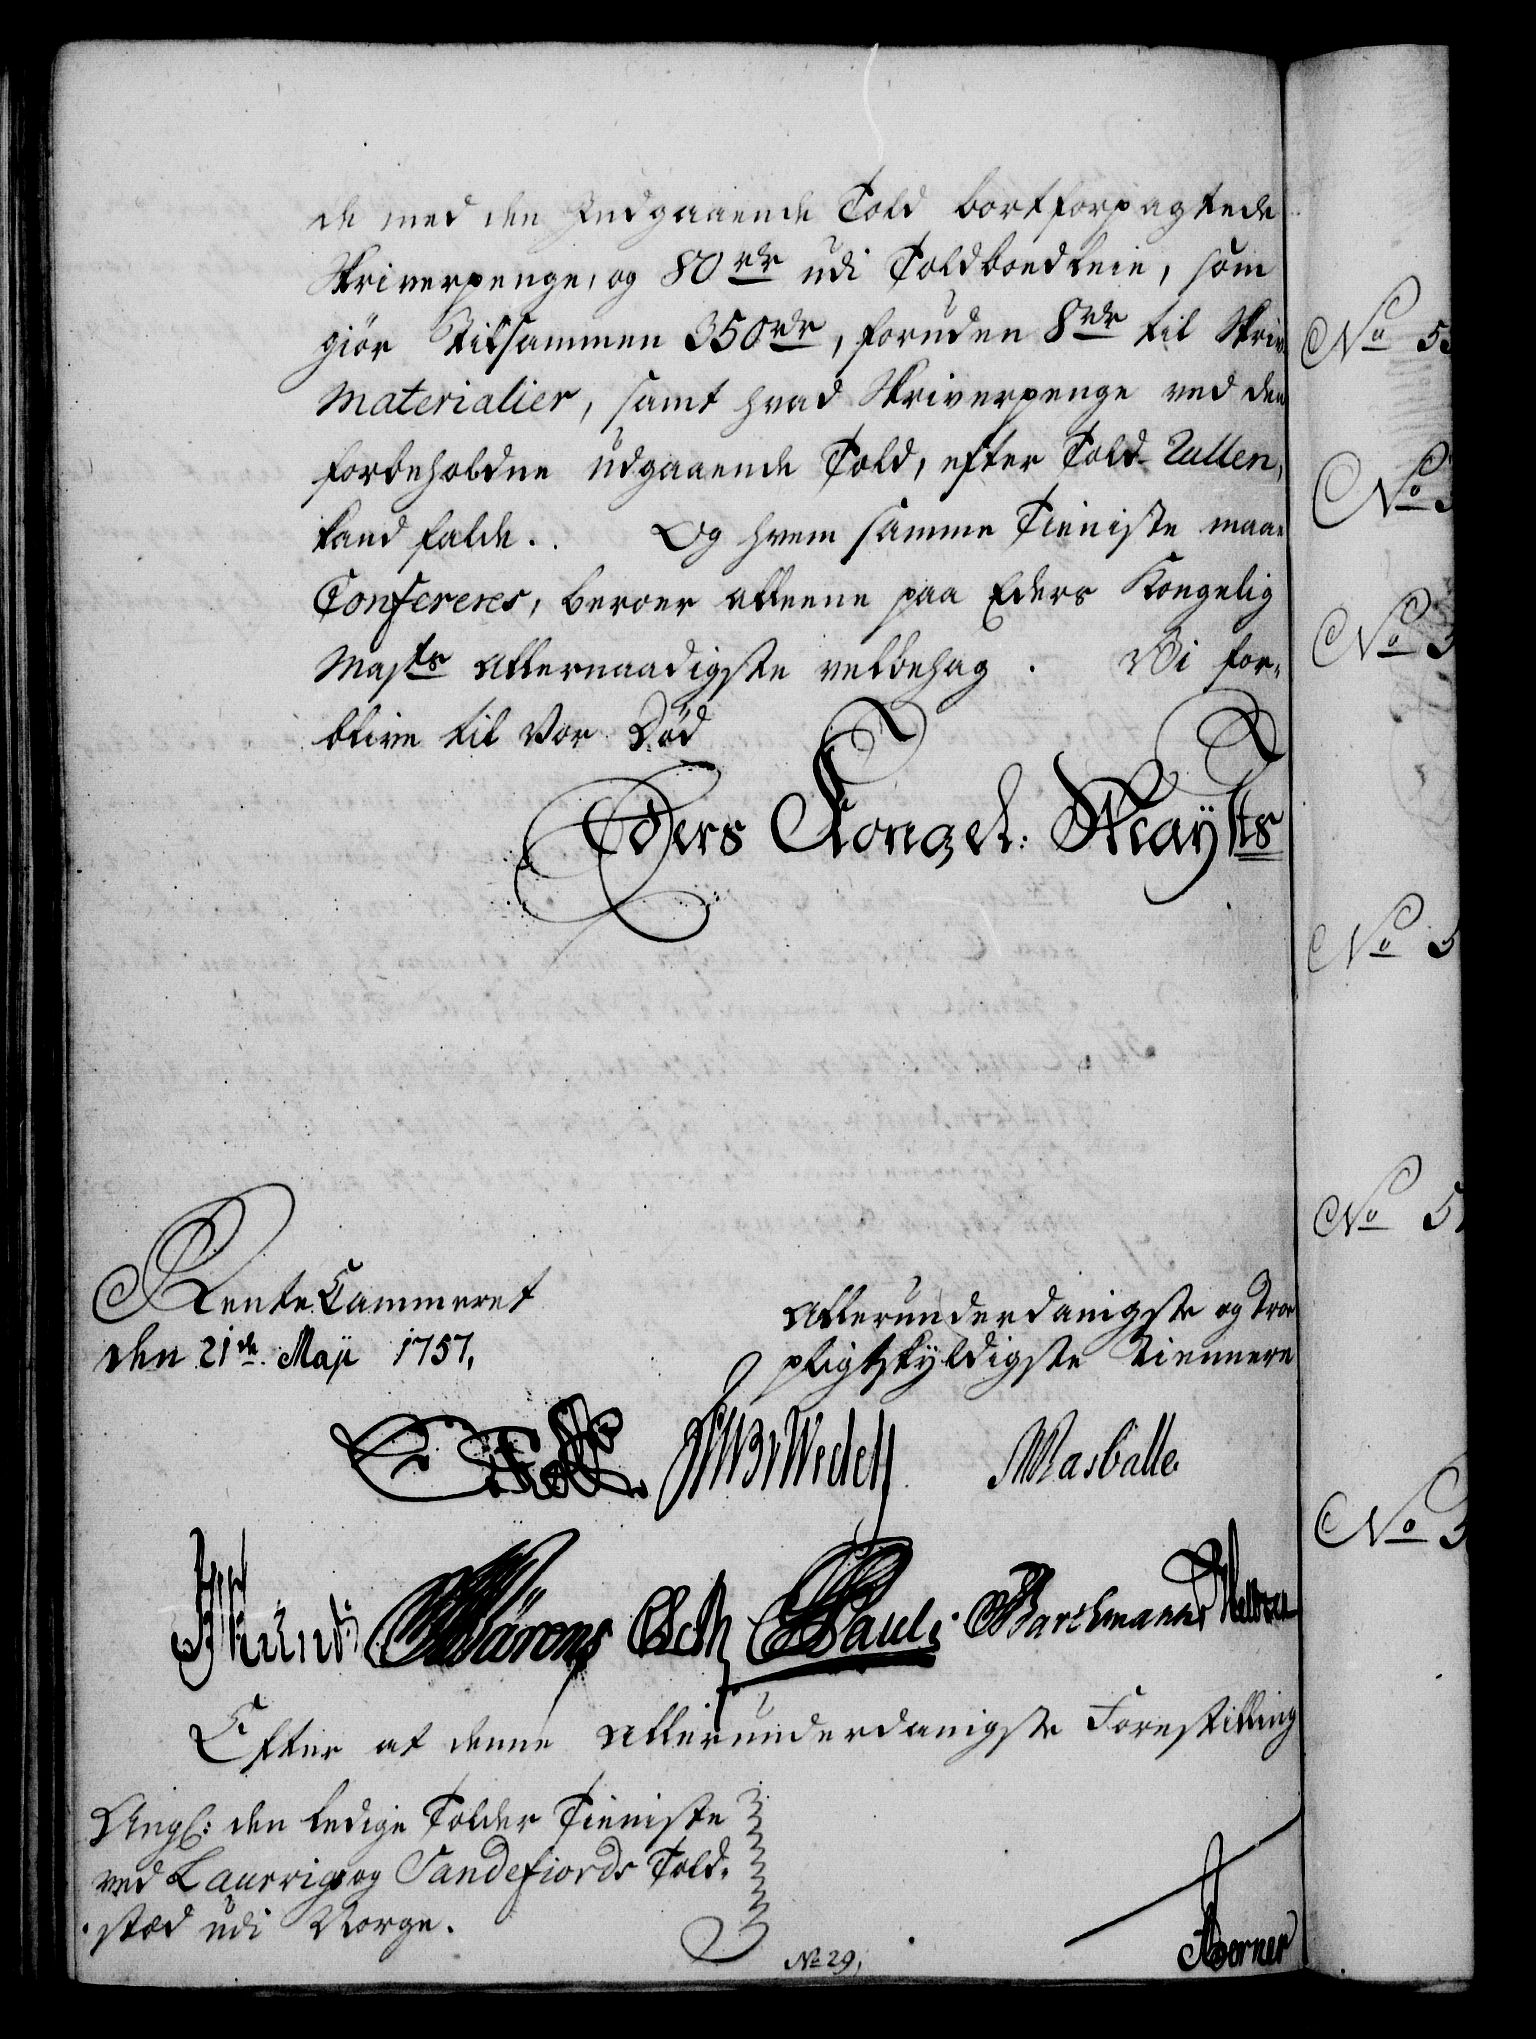 de med den Indgaaende Told bortforpagtede
Skriverpenge, og 80 rdr udi Toldboedleie, som
giør Tilsammen 350 rdr, foruden 8 rdr til Skriv
Materialier, samt hvad Skriverpenge ved den
forbeholdne udgaaende Told, efter Told-Rullen,
kand falde. Og hvem samme Tieniste maae
Confereres, beroer alleene paa Eders Kongelig
Majts allernaadigste velbehag. Vi for-
blive til Vor Død
Eders Kongel: Mayts
Rente Cammeret
den 21de Maji 1757,
Allerunderdanigste og Troe
pligtskyldigste Tiennere
Wedell
Masballe
Pauli
Barchmann
Efter at denne allerunderdanigste Forestilling
Ang: den ledige Tolder Tieniste
ved Laurvig og Sandefiords Told-
stæd udi Norge.
No 29,
No 5
No
No 3
No 5
No 5
No 3